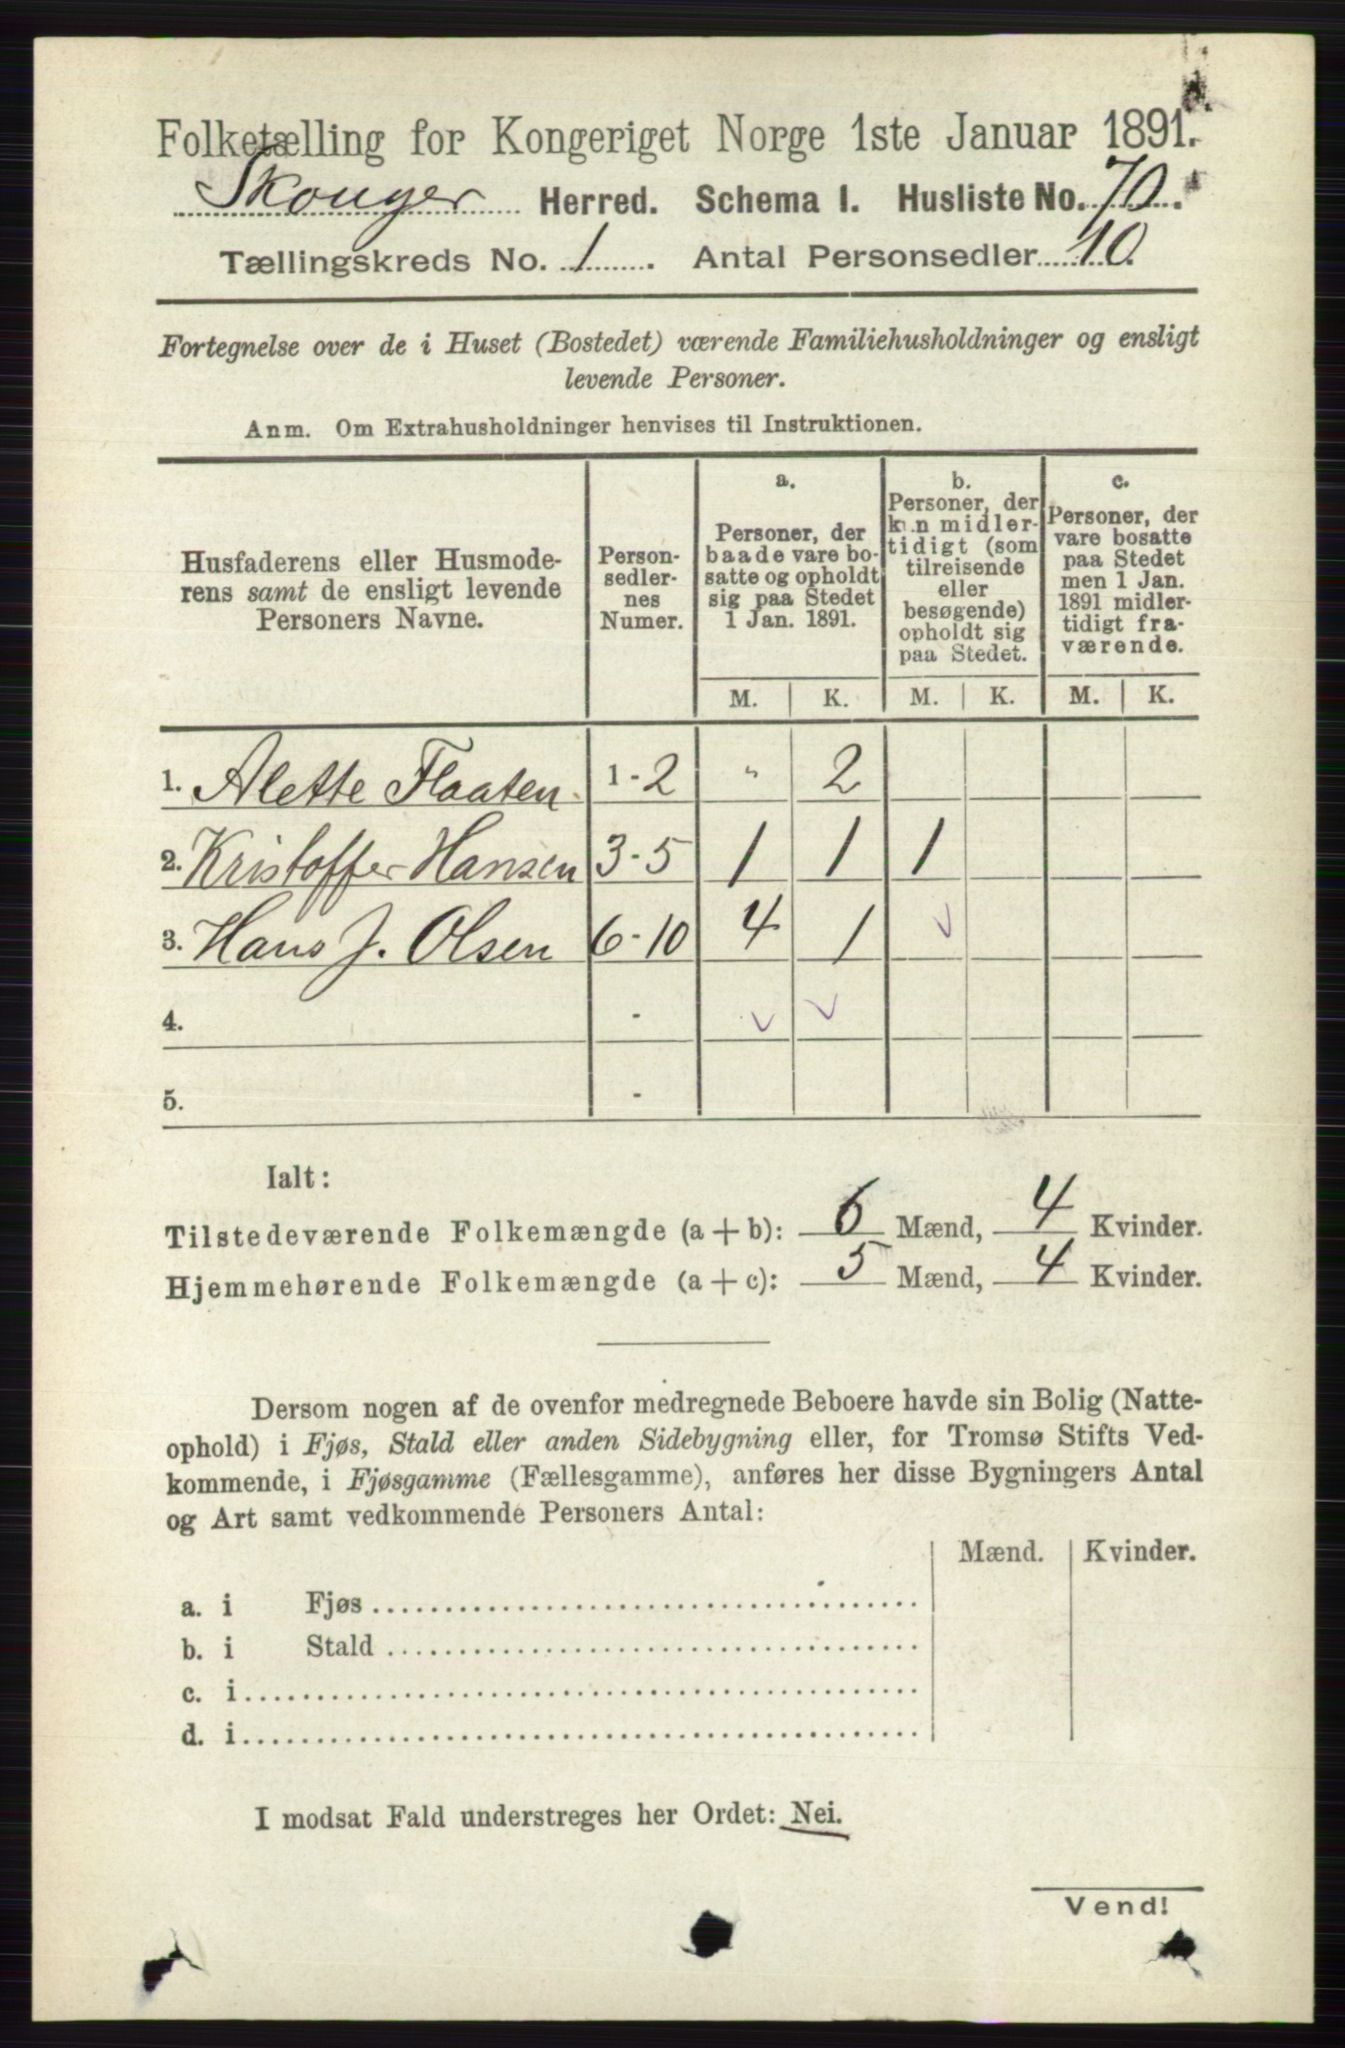 Folketælling for Kongeriget Norge 1ste Januar 1891.
Skouger Herred. Schema I. Husliste No. 70.
Tællingskreds No. 1. Antal Personsedler 10.
Fortegnelse over de i Huset (Bostedet) værende Familiehusholdninger og ensligt
levende Personer.
Anm. Om Extrahusholdninger henvises til Instruktionen.
Husfaderens eller Husmode-
rens samt de ensligt levende
Personers Navne.
Person-
sedler-
nes
Numer.
a.
Personer, der
baade vare bo-
satte og opholdt
sig paa Stedet
1 Jan. 1891.
b.
Personer, der
kun midler-
tidigt (som
tilreisende
eller
besøgende)
opholdt sig
paa Stedet.
c.
Personer, der
vare bosatte
paa Stedet
men 1 Jan.
1891 midler-
tidigt fra-
værende.
M. K. M. K. M. K.
1. Alette Flaaten. 1-2 " 2
2. Kristoffer Hansen 3-5 1 1 1
3. Hans J. Olsen 6-10 4 1 v
4. - v v
5. -
Ialt:
Tilstedeværende Folkemængde (a + b): 6 Mænd, 4 Kvinder.
Hjemmehørende Folkemængde (a + c): 5 Mænd, 4 Kvinder.
Dersom nogen af de ovenfor medregnede Beboere havde sin Bolig (Natte-
ophold) i Fjøs, Stald eller anden Sidebygning eller, for Tromsø Stifts Ved-
kommende, i Fjøsgamme (Fællesgamme), anføres her disse Bygningers Antal
og Art samt vedkommende Personers Antal:
Mænd. Kvinder.
a. i Fjøs
b. i Stald
c. i
d. i
I modsat Fald understreges her Ordet: Nei.
Vend!